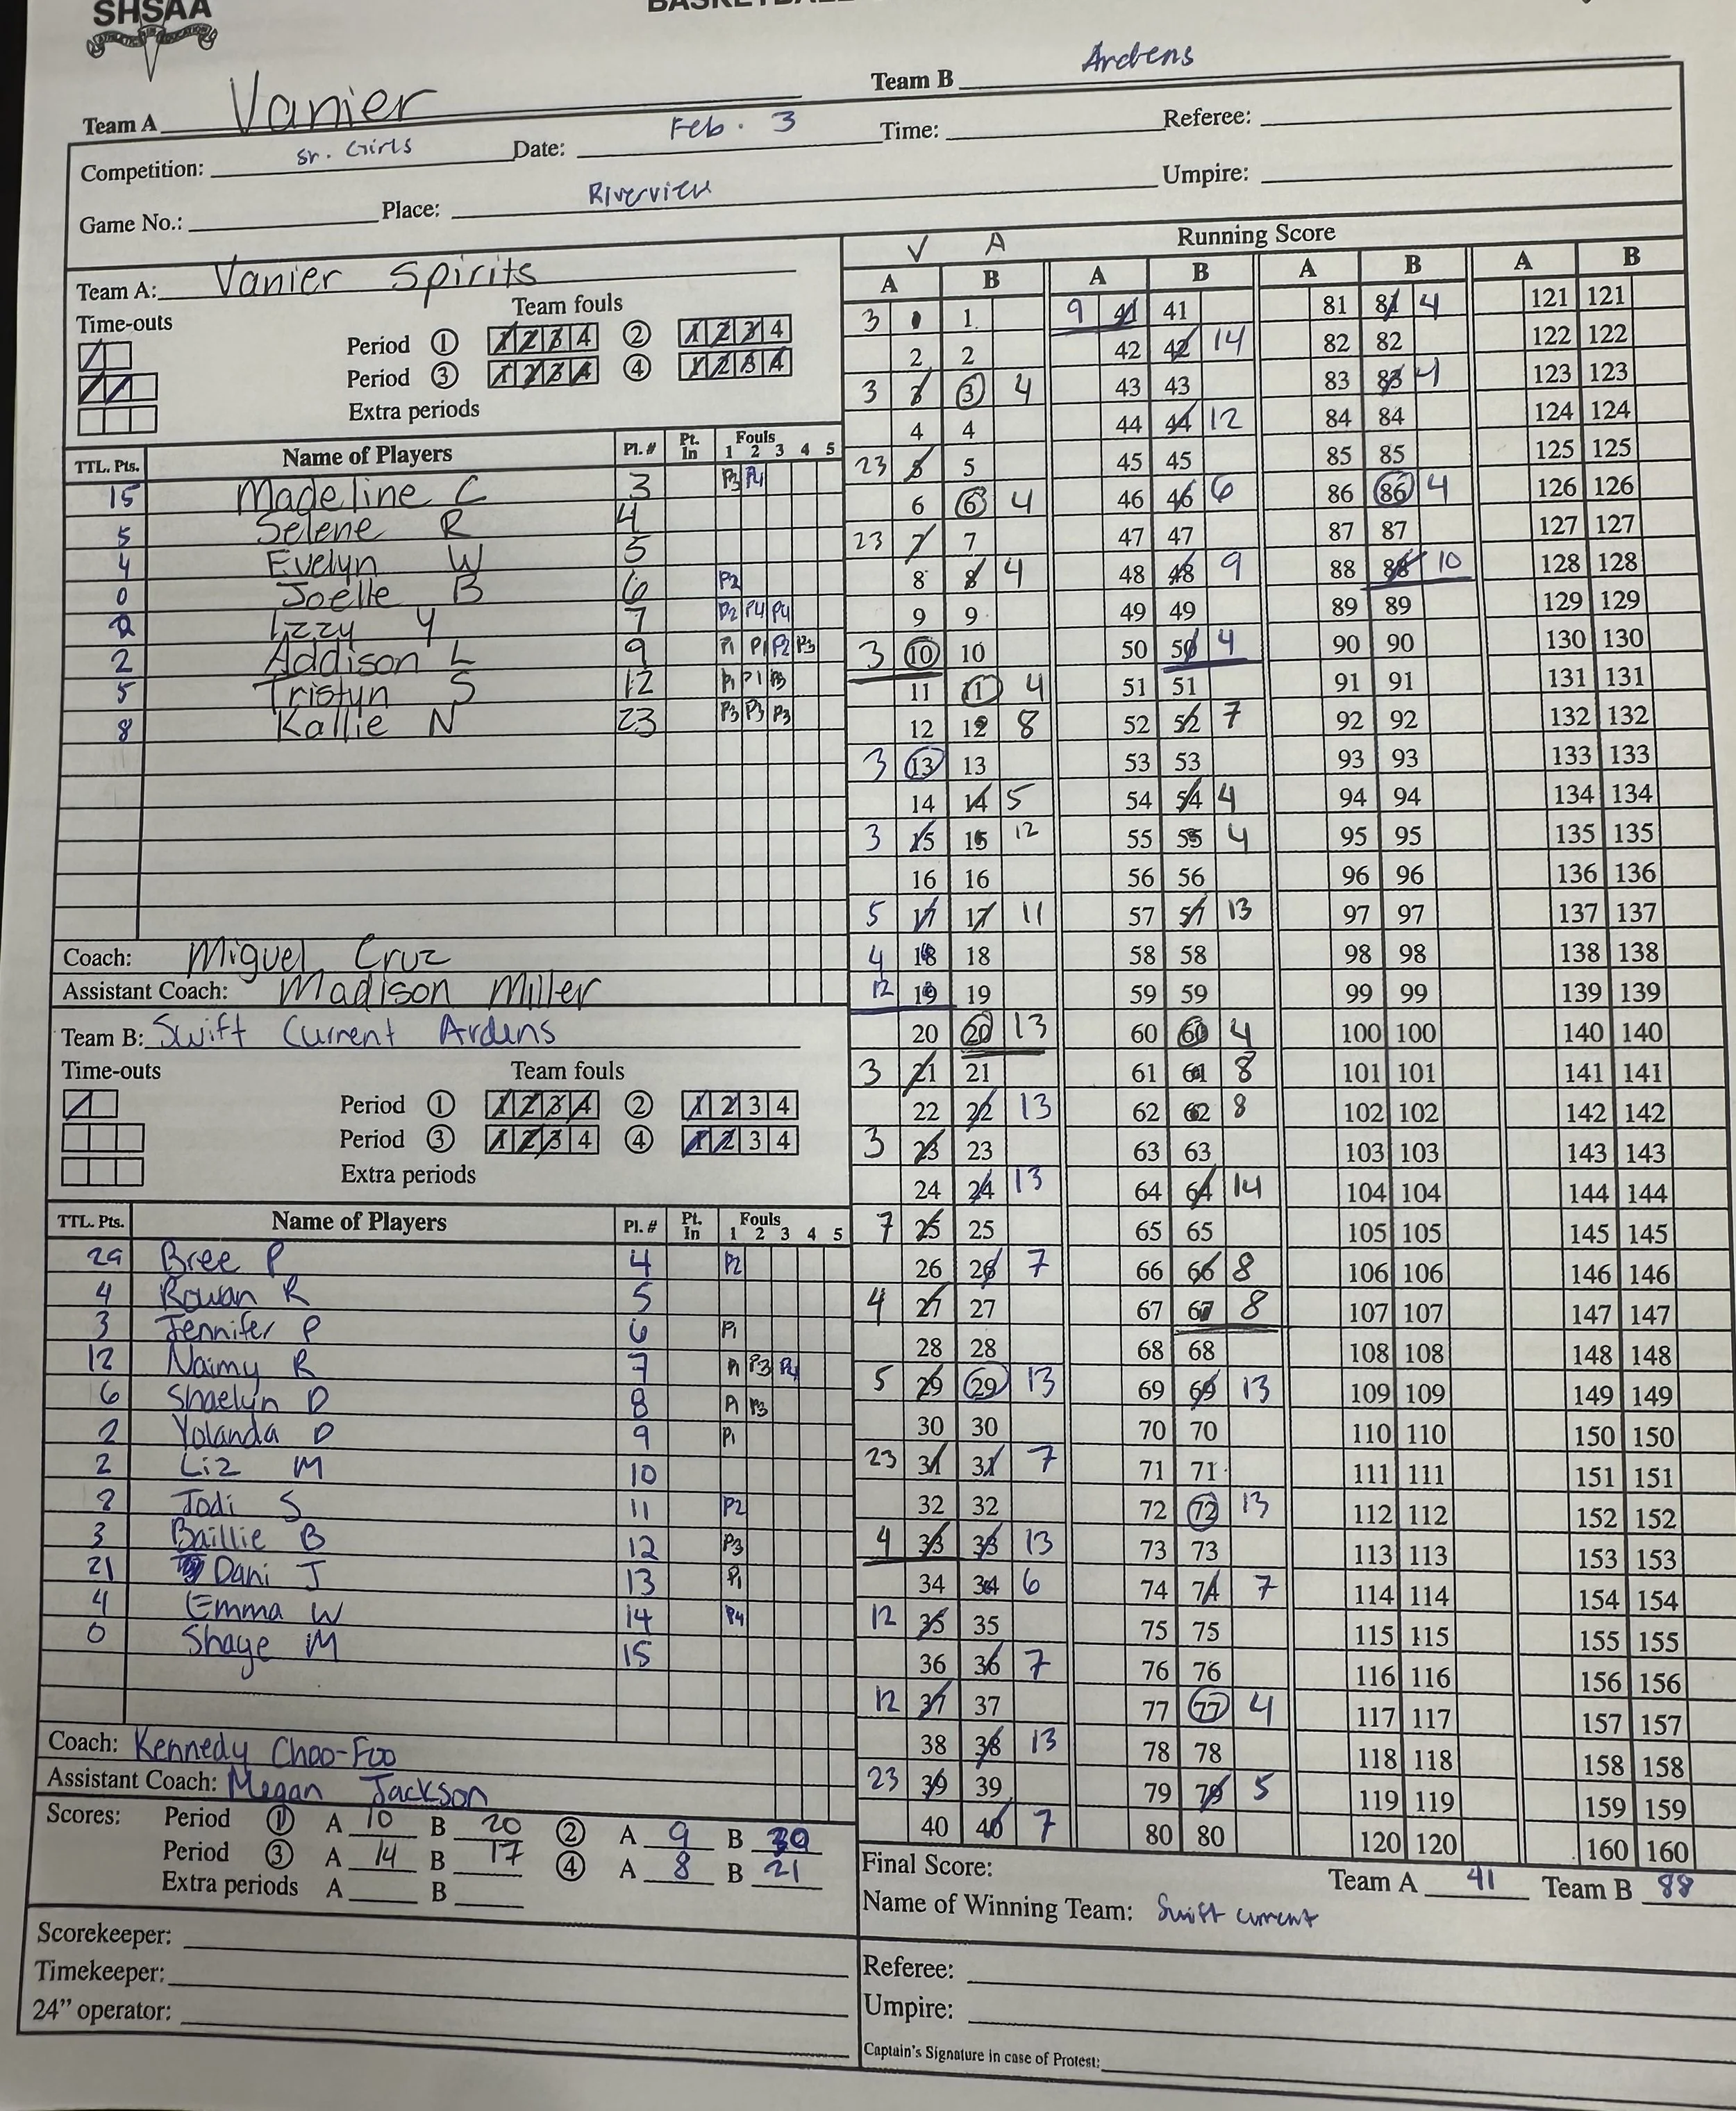 SHSAA
Team A Vanier Team B Ardens
Competition: Sr. Girls Date: Feb. 3 Time: Referee:
Game No.: Place: Riverview Umpire:
Team A: Vanier Spirits
Time-outs Team fouls
Period ① 1 2 3 4 ② 1 2 3 4
Period ③ 1 2 3 4 ④ 1 2 3 4
Extra periods
TTL. Pts. Name of Players Pl. # Pt. In Fouls 1 2 3 4 5
15 Madeline C 3 P3 P4
5 Selene R 4
4 Evelyn W 5
0 Joelle B 6 P2
2 Izzy Y 7 P2 P4 P4
2 Addison L 9 P1 P1 P2 P3
5 Tristyn S 12 P1 P1 P3
8 Kallie N 23 P3 P3 P3
Coach: Miguel Cruz
Assistant Coach: Madison Miller
Team B: Swift Current Ardens
Time-outs Team fouls
Period ① 1 2 3 4 ② 1 2 3 4
Period ③ 1 2 3 4 ④ 1 2 3 4
Extra periods
TTL. Pts. Name of Players Pl. # Pt. In Fouls 1 2 3 4 5
29 Bree P 4 P2
4 Rowan R 5
3 Jennifer P 6 P1
12 Naimy R 7 P1 P3 P4
6 Shaelyn D 8 P1 P3
2 Yolanda D 9 P1
2 Liz M 10
2 Jodi S 11 P2
3 Baillie B 12 P3
21 Dani J 13 P1
4 Emma W 14 P4
0 Shaye M 15
Coach: Kennedy Choo-Foo
Assistant Coach: Megan Jackson
Scores: Period ① A 10 B 20 ② A 9 B 30
Period ③ A 14 B 17 ④ A 8 B 21
Extra periods A B
Scorekeeper:
Timekeeper:
24” operator:
V A Running Score
A B A B A B A B
3 1 1 9 41 41 81 81 4 121 121
2 2 42 42 14 82 82 122 122
3 3 3 4 43 43 83 83 4 123 123
4 4 44 44 12 84 84 124 124
23 5 5 45 45 85 85 125 125
6 6 4 46 46 6 86 86 4 126 126
23 7 7 47 47 87 87 127 127
8 8 4 48 48 9 88 88 10 128 128
9 9 49 49 89 89 129 129
3 10 10 50 50 4 90 90 130 130
11 11 4 51 51 91 91 131 131
12 12 8 52 52 7 92 92 132 132
3 13 13 53 53 93 93 133 133
14 14 5 54 54 4 94 94 134 134
3 15 15 12 55 55 4 95 95 135 135
16 16 56 56 96 96 136 136
5 17 17 11 57 57 13 97 97 137 137
4 18 18 58 58 98 98 138 138
12 19 19 59 59 99 99 139 139
20 20 13 60 60 4 100 100 140 140
3 21 21 61 61 8 101 101 141 141
22 22 13 62 62 8 102 102 142 142
3 23 23 63 63 103 103 143 143
24 24 13 64 64 14 104 104 144 144
7 25 25 65 65 105 105 145 145
26 26 7 66 66 8 106 106 146 146
4 27 27 67 67 8 107 107 147 147
28 28 68 68 108 108 148 148
5 29 29 13 69 69 13 109 109 149 149
30 30 70 70 110 110 150 150
23 31 31 7 71 71 111 111 151 151
32 32 72 72 13 112 112 152 152
4 33 33 13 73 73 113 113 153 153
34 34 6 74 74 7 114 114 154 154
12 35 35 75 75 115 115 155 155
36 36 7 76 76 116 116 156 156
12 37 37 77 77 4 117 117 157 157
38 38 13 78 78 118 118 158 158
23 39 39 79 79 5 119 119 159 159
40 40 7 80 80 120 120 160 160
Final Score: Team A 41 Team B 88
Name of Winning Team: Swift current
Referee:
Umpire:
Captain's Signature in case of Protest: